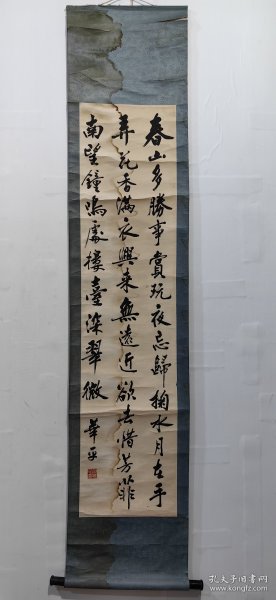 春山多勝事賞玩夜忘歸掬水月在手
弄花香滿衣興来無遠近欲去惜芳菲
南望鐘鳴處樓臺深翠微 華平
孔夫子旧书网